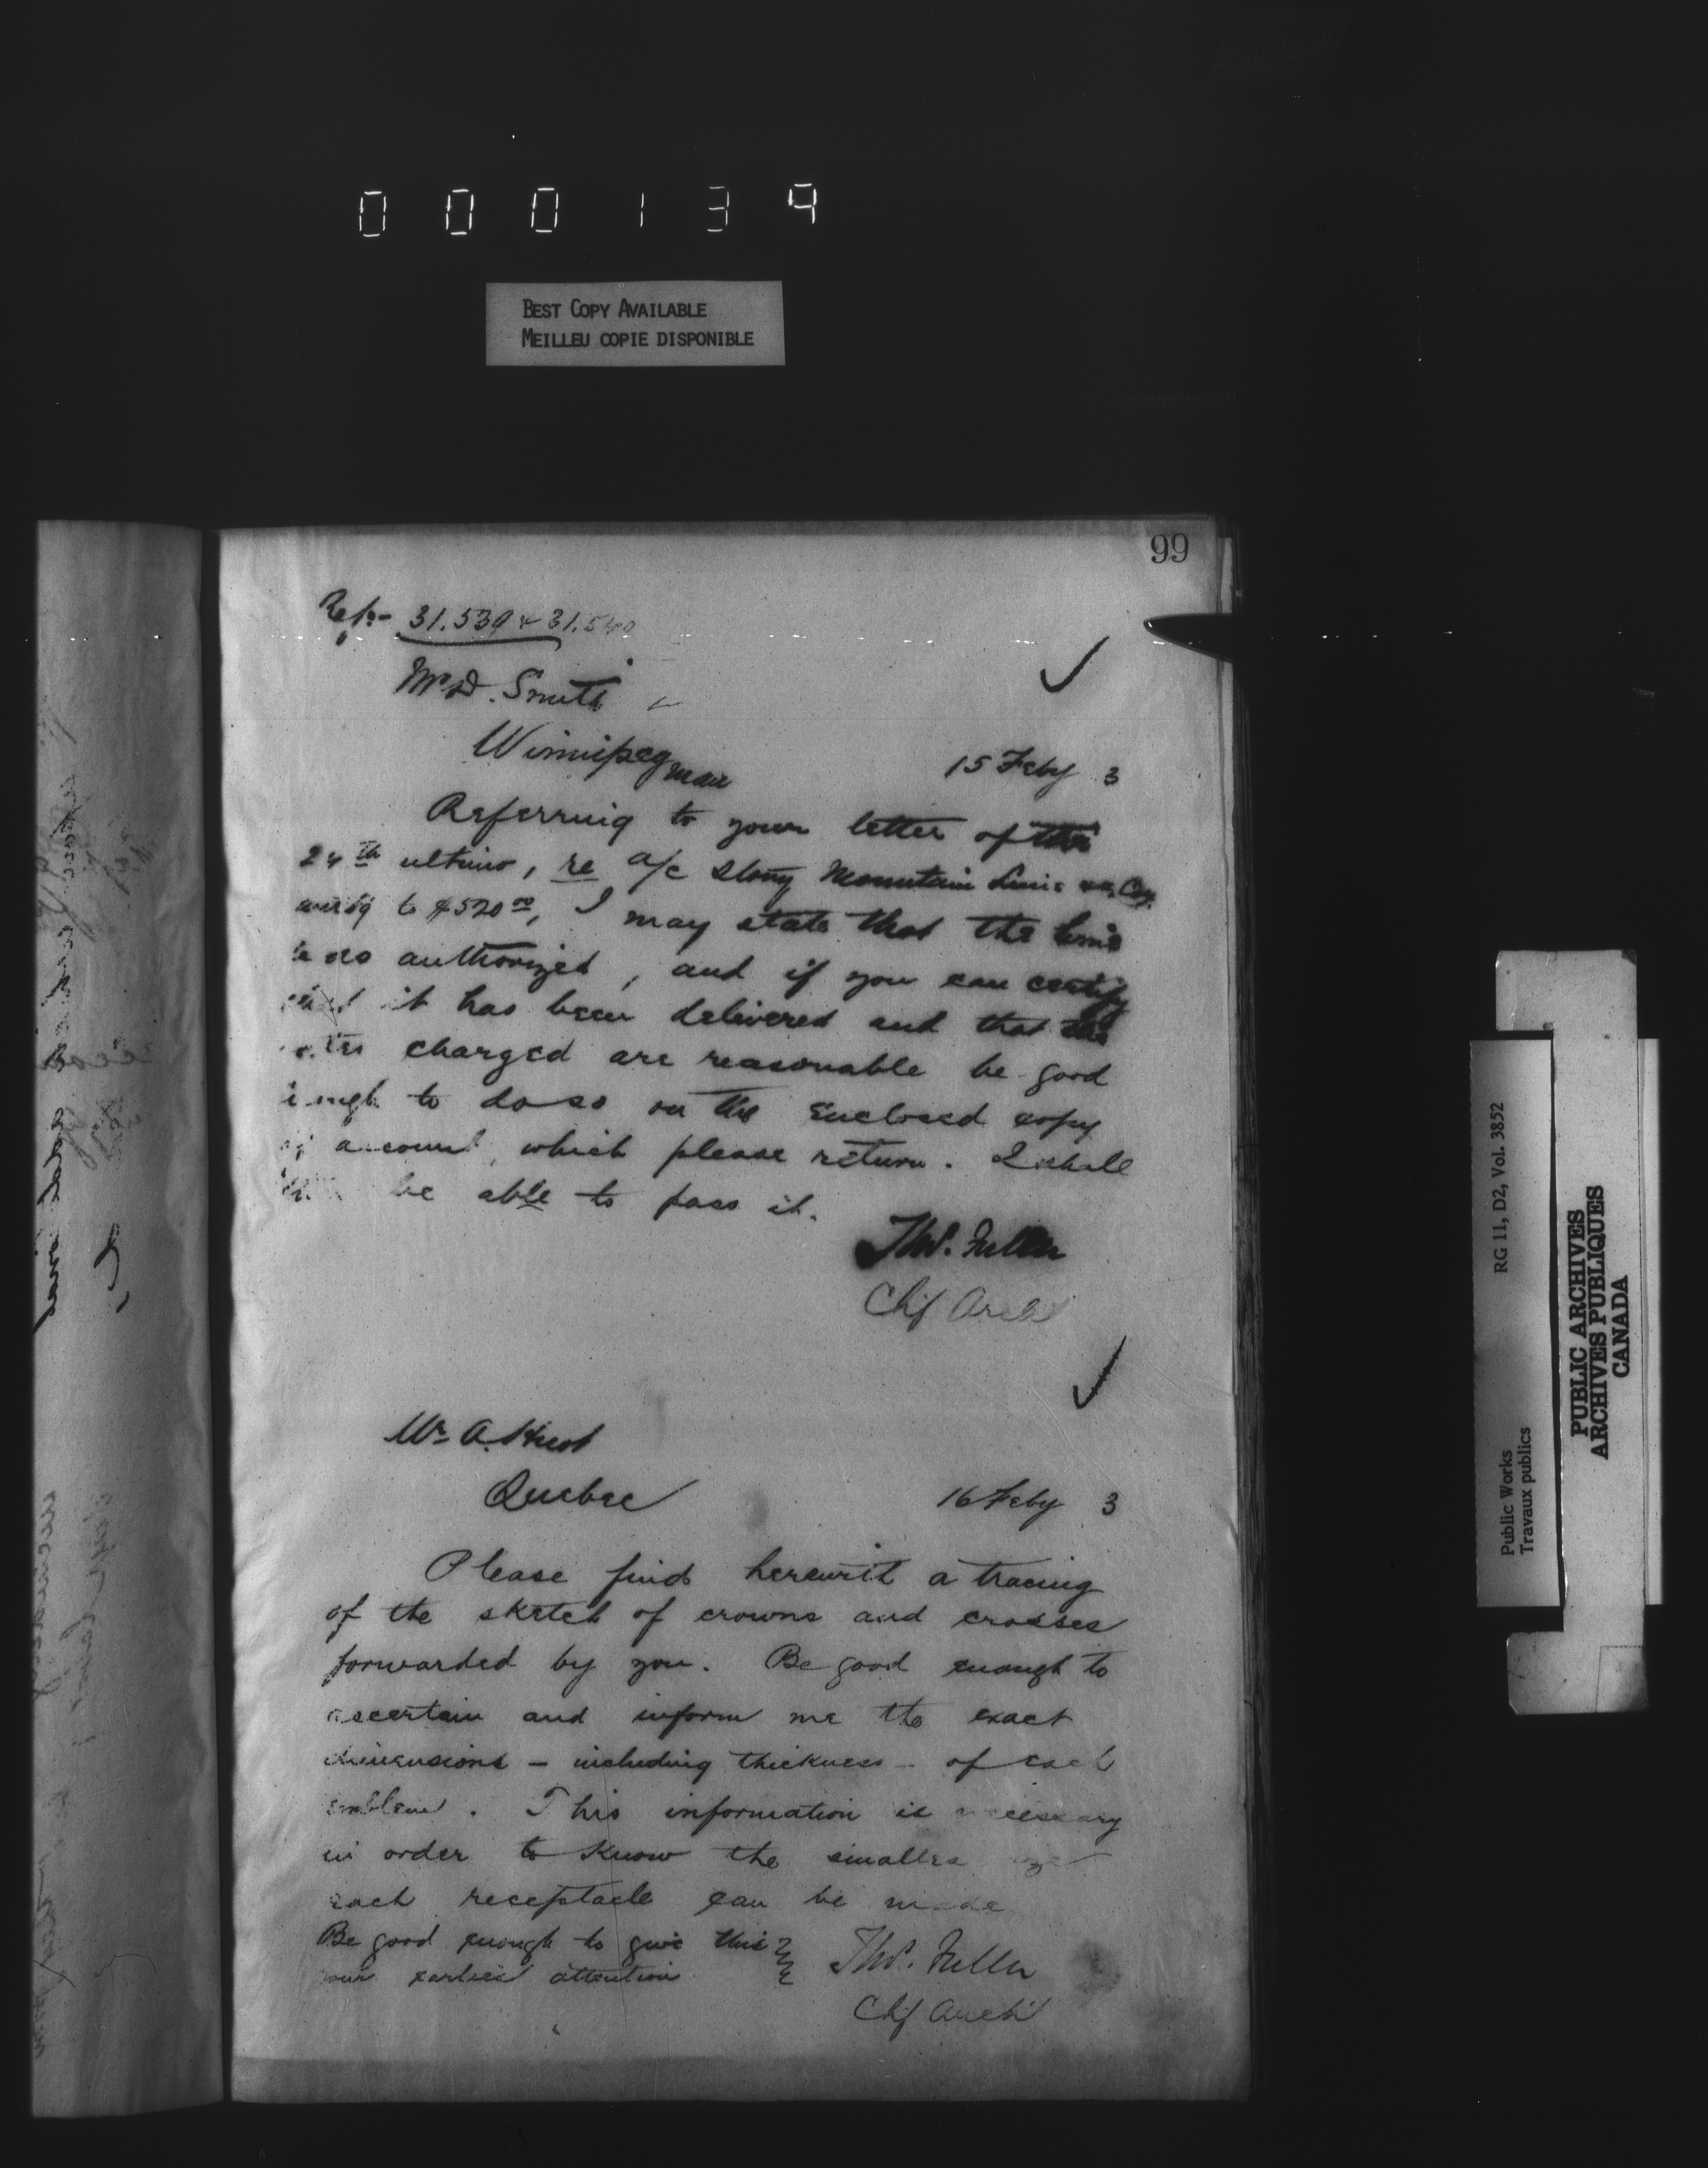 000139
BEST COPY AVAILABLE
MEILLEU COPIE DISPONIBLE
99
Ref:- 31.539 & 31.540
Mr D. Smith
Winnipeg Man
15 Feby 3
Referring to your letter of the
24th ultimo, re a/c Stony Mountain Lime Coy.
to $520 00, I may state that the lime
was authorized, and if you can certify
that it has been delivered and that the
rates charged are reasonable be good
enough to do so on the enclosed copy
of account, which please return. I shall
be able to pass it.
Thos. Fuller
Chf Archt
Mr A. Huot
Quebec
16 Feby 3
Please find herewith a tracing
of the sketch of crowns and crosses
forwarded by you. Be good enough to
ascertain and inform me the exact
dimensions – including thickness – of each
emblem. This information is necessary
in order to know the smallest
each receptacle can be made
Be good enough to give this
your earliest attention
Thos. Fuller
Chf Archt
RG 11, D2, Vol. 3852
Public Works
Travaux publics
PUBLIC ARCHIVES
ARCHIVES PUBLIQUES
CANADA